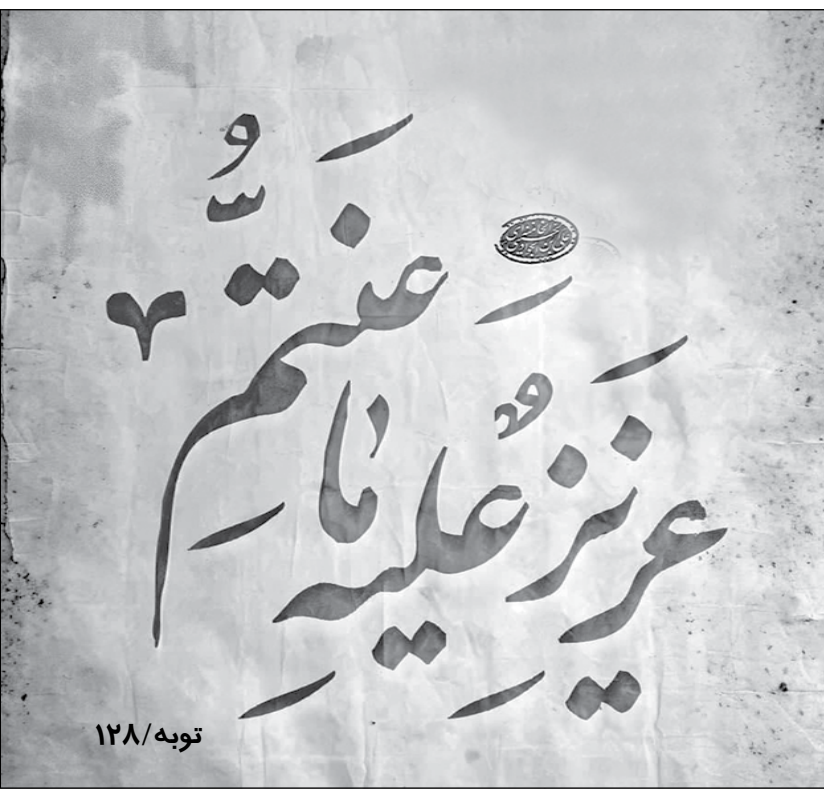 عَزِیزٌ عَلَیهِ مَا عَنِتُّم
توبه/۱۲۸